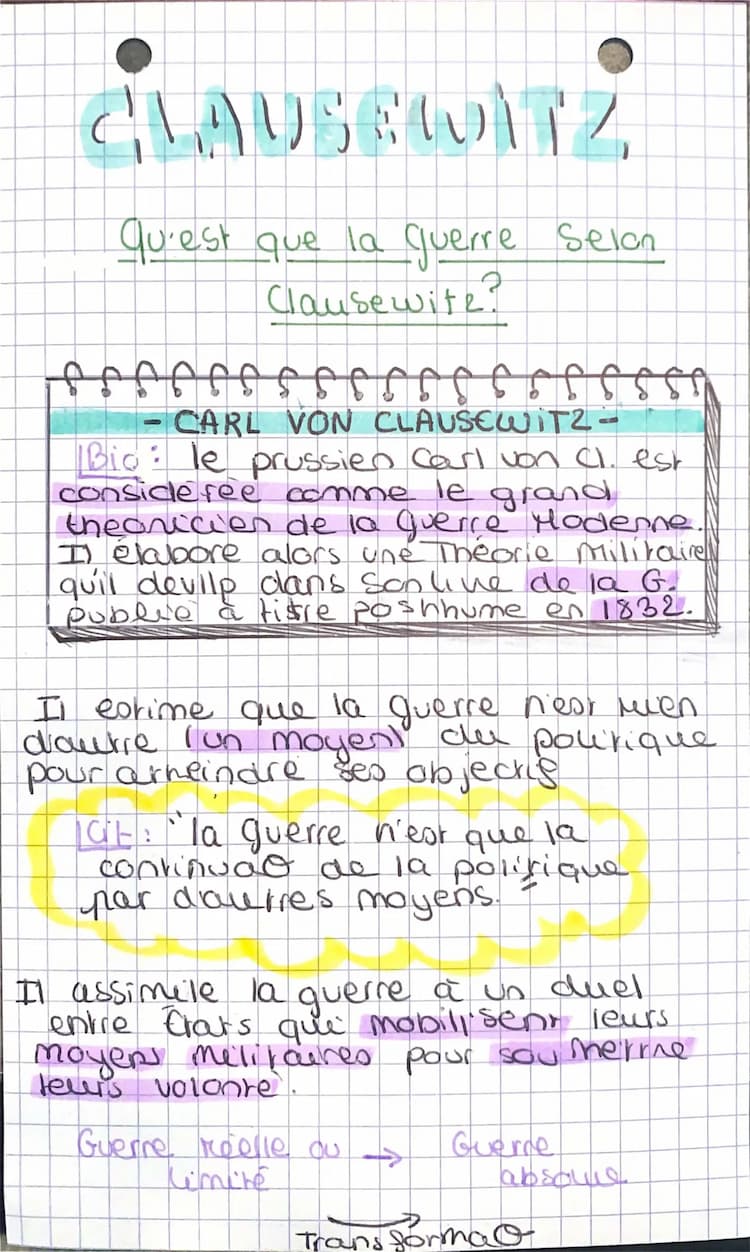 CLAUSEWITZ
Qu'est que la guerre selon
Clausewitz?
- CARL VON CLAUSEWITZ -
Bio: le prussien Carl von Cl. est
considérée comme le grand
théoricien de la guerre Moderne.
Il élabore alors une Théorie militaire
qu'il devllp dans son livre de la G.
publié à titre posthhume en 1832.
Il estime que la guerre n'est rien
d'autre (un moyen) du politique
pour atteindre ses objectifs
Cit: "la guerre n'est que la
continuaO de la politique
par d'autres moyens."
Il assimile la guerre à un duel
entre États qui mobilisent leurs
moyens militaires pour soumettre
leurs volonté.
Guerre réelle ou → Guerre
limité absolue
TransformaO